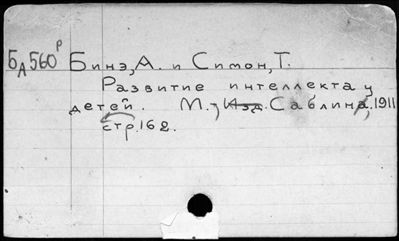 БА560Р Бинэ, А. и Симон, Т.
Развитие интеллекта у
детей. М., Изд. Саблина, 1911
стр. 162.